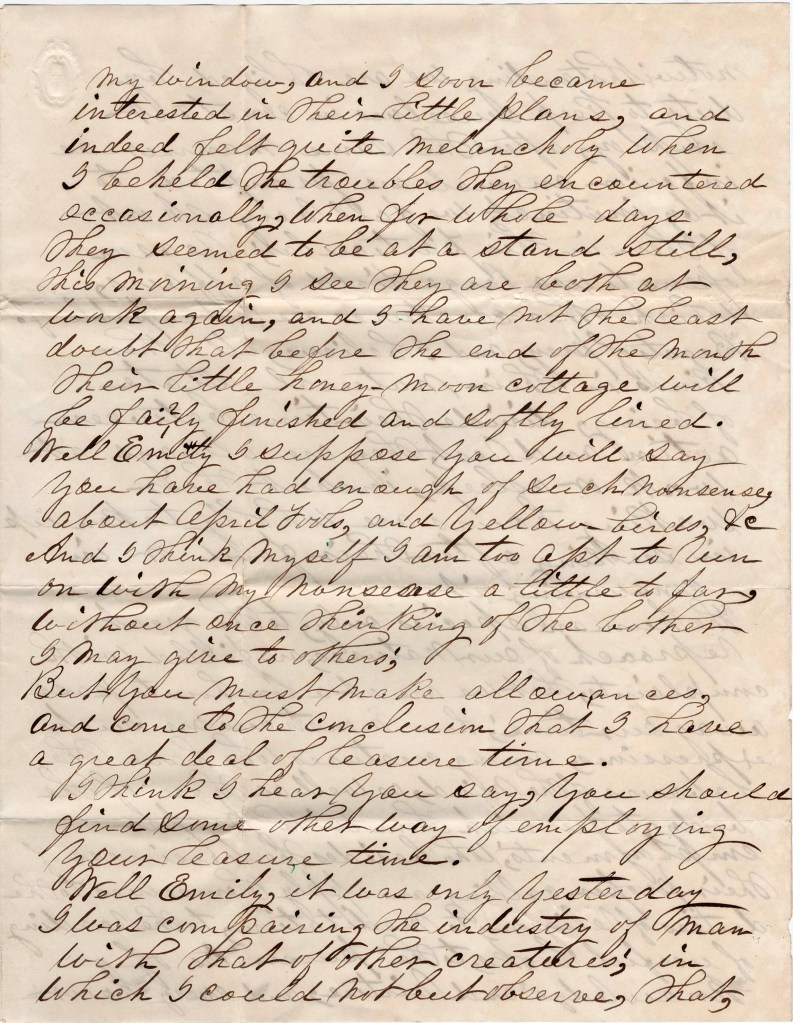 my window, and I soon became
interested in their little plans, and
indeed felt quite melancholy when
I beheld the troubles they encountered
occasionally, when for whole days
they seemed to be at a stand still,
this morning I see they are both at
work again, and I have not the least
doubt that before the end of the month
their little honey-moon cottage will
be fairly finished and softly lined.
Well Emily I suppose you will say
you have had enough of such nonsense,
about April Fools, and Yellow-birds, &c
And I think myself I am too apt to run
on with my nonsense a little to far,
without once thinking of the bother
I may give to others;
But you must make allowances,
and come to the conclusion that I have
a great deal of leasure time.
I think I hear you say, you should
find some other way of employing
your leasure time.
Well Emily, it was only yesterday
I was compairing the industry of man
with that of other creatures; in
which I could not but observe, that,